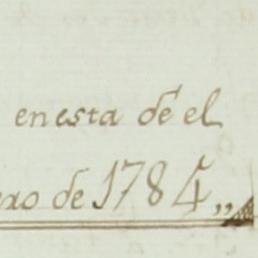 en esta de el
ero de 1784,,